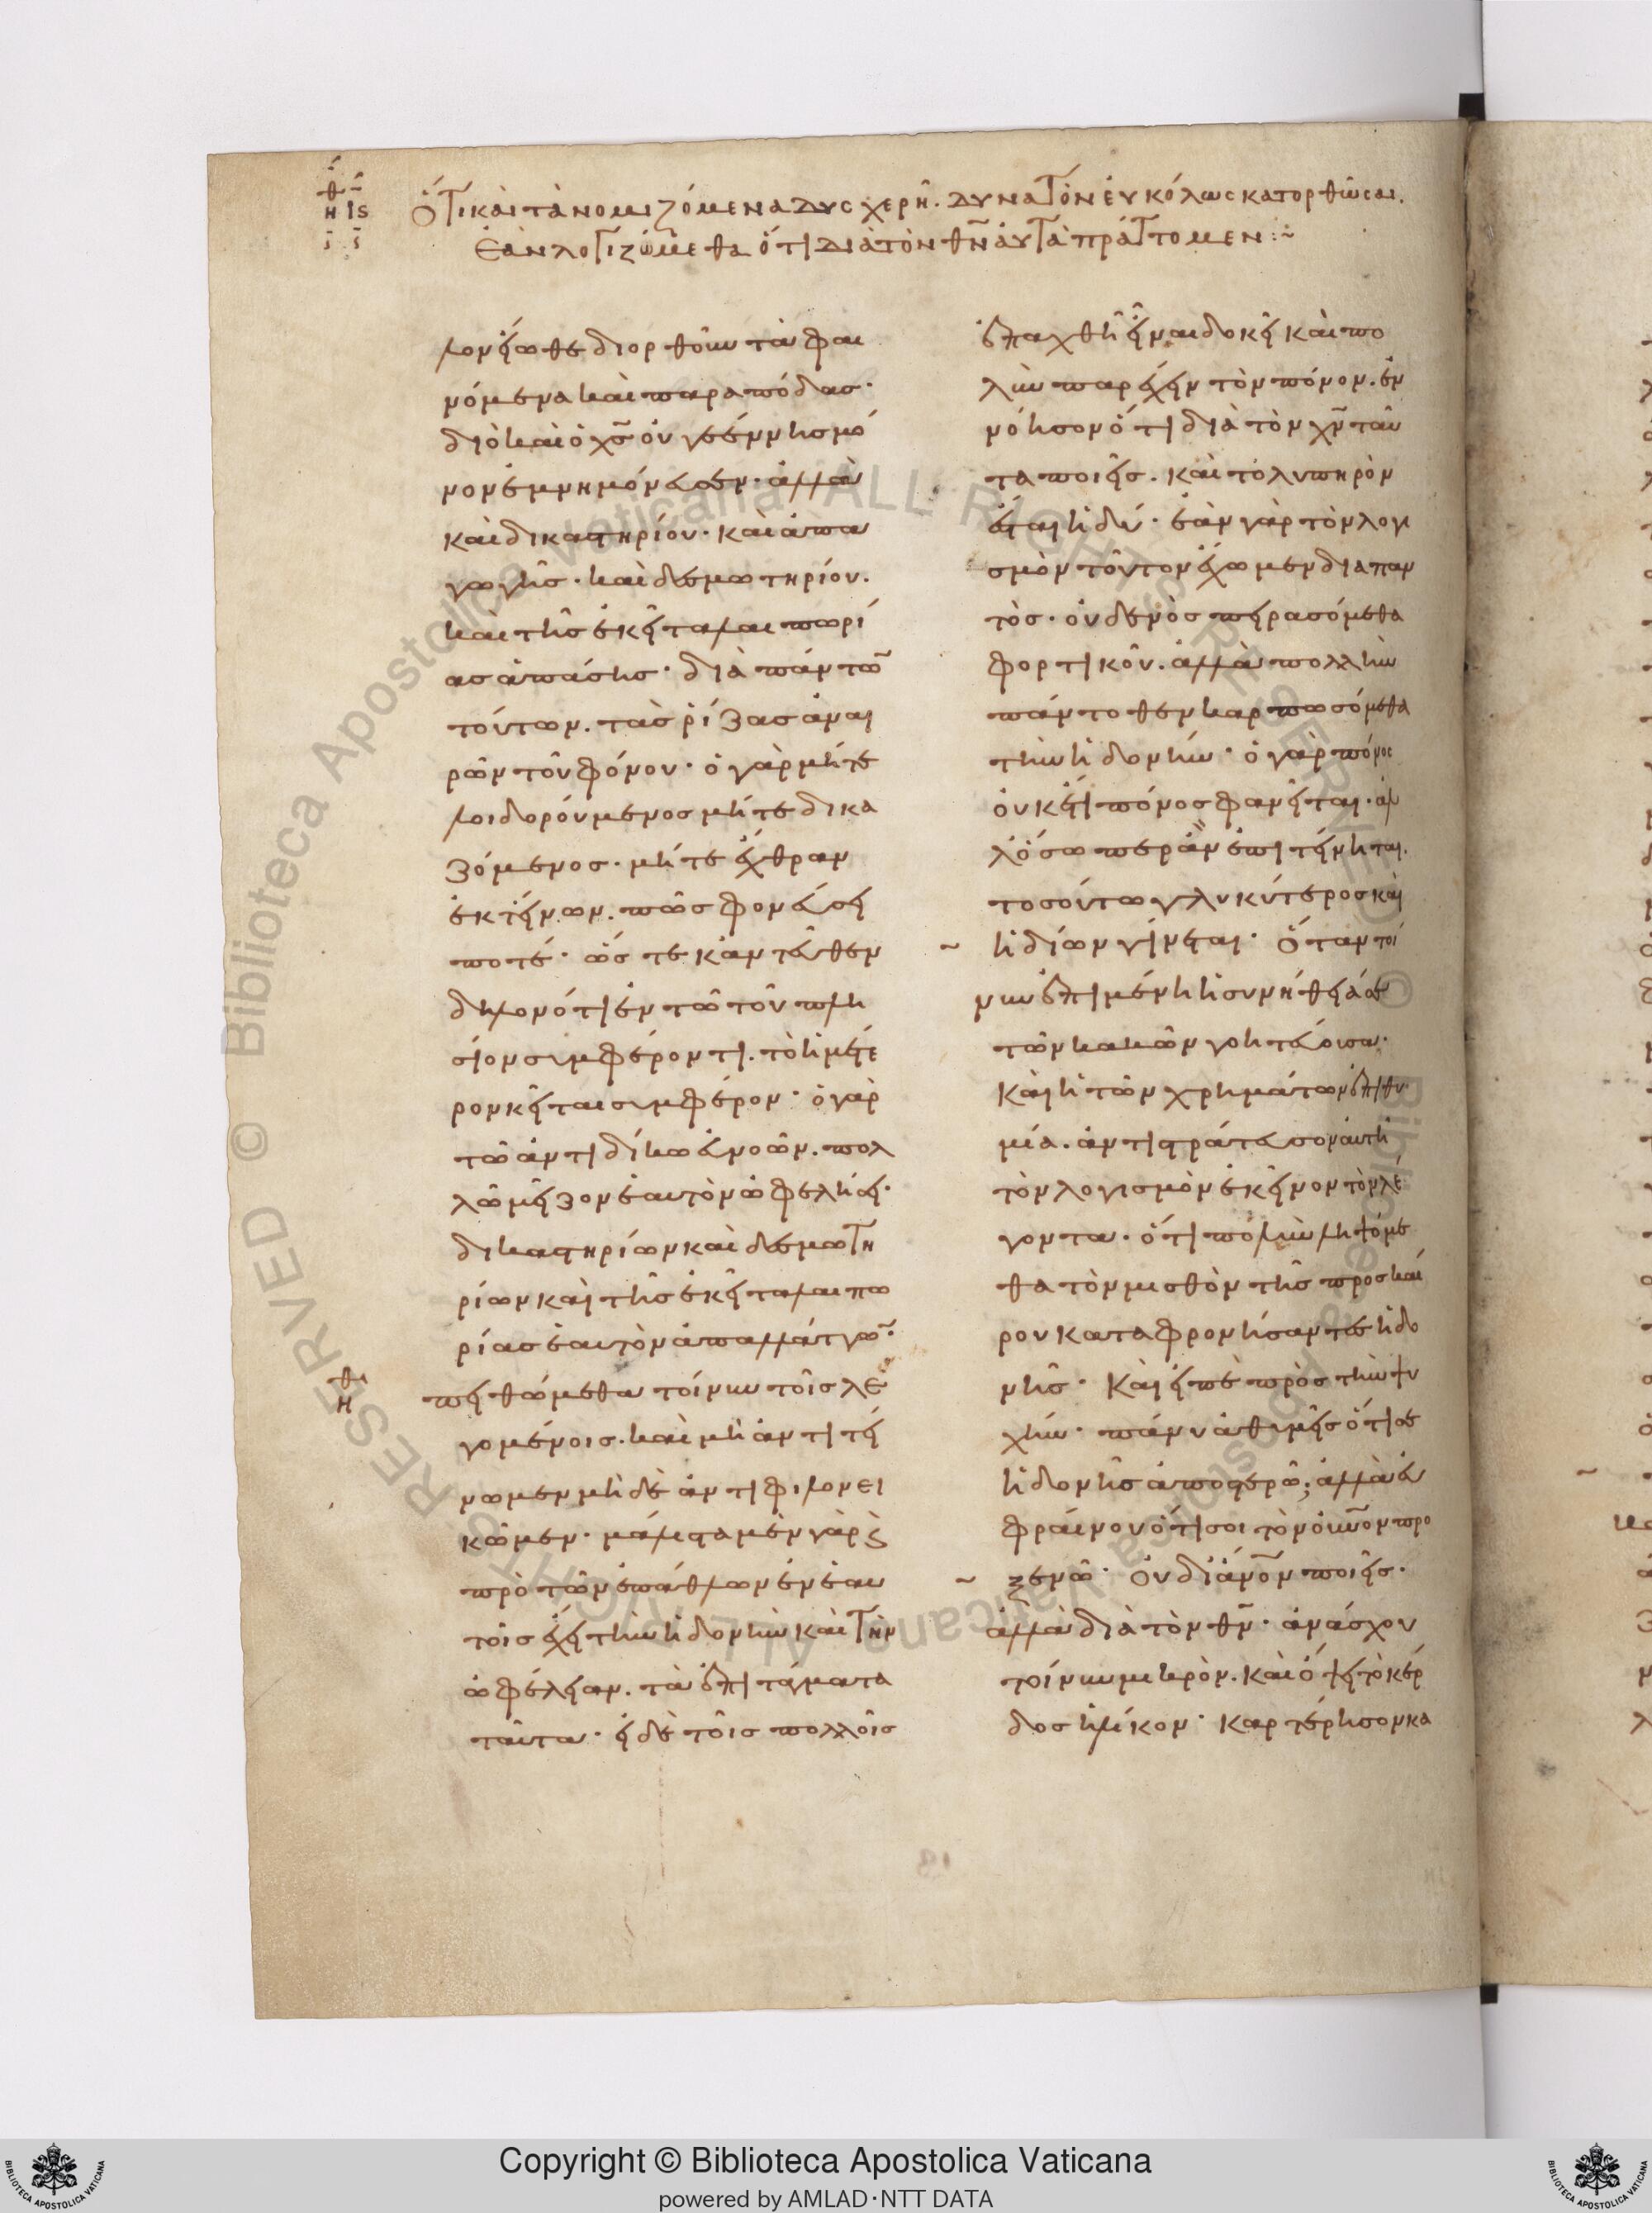 Ὅτι καὶ τὰ νομιζόμενα δυσχερῆ. δυνατὸν ἐυκόλως κατορθῶσαι.
Ἐὰν λογιζώμεθα ὅτι διὰ τὸν θν ἀυτὰ πράττομεν :~
λον ἔιωθε διορθοῦν τὰ φαι
νόμενα καὶ παρα πόδας·
διὸ καὶ ὁ χς ὀυ γεέννης μό
νον ἐμνημόνευσεν· ἀλλὰ
καὶ δικαστηρίου· καὶ ἀπα
γωγῆς· καὶ δεσμωτηρίου.
καὶ τῆς ἐκεῖ ταλαιπωρί
ας ἁπάσης· διὰ πάντων
τούτων. τὰς ῥίζας ἀναι
ρῶν τοῦ φόνου· ὁ γὰρ μήτε
λοιδορούμενος μήτε δικα
ζόμενος· μήτε ἔχθραν
ἐκτείνων. πῶς φονεύσει
ποτέ· ὥστε κἀντεῦθεν
δῆλον ὅτι ἐν τῶ τοῦ πλη
σίον συμφέροντι. τὸ ἡμέτε
ρον κεῖται συμφέρον· ὁ γὰρ
τῶ ἀντιδίκω ἐυνοῶν. πολ
λῶ μεῖζον ἑαυτὸν ὠφελήσει·
δικαστηρίων καὶ δεσμωτη
ρίων καὶ τῆς ἐκεῖ ταλαιπω
ρίας ἑαυτὸν ἀπαλλάττων·
πειθώμεθα τοίνυν τοῖς λε
γομένοις. καὶ μὴ ἀντιτεί
νωμεν μὴ δὲ ἀντιφιλονει
κῶμεν· μάλιστα μὲν γὰρ ϗ
πρὸ τῶν ἐπάθλων ἐν ἑαυ
τοῖς ἔχει τὴν ἡδονὴν καὶ τὴν
ὠφέλειαν. τὰ ἐπιτάγματα
ταῦτα· ἐι δὲ τοῖς πολλοῖς
ἐπαχθῆ εἶναι δοκεῖ καὶ πο
λὺν παρέχειν τὸν πόνον. ἐν
νόησον ὅτι διὰ τὸν χν ταῦ
τα ποιεῖς. καὶ τὸ λυπηρὸν
ἔσται ἡδύ· ἐὰν γὰρ τὸν λογι
σμὸν τοῦτον ἔχωμεν διαπαν
τὸς· ὀυδενὸς πειρασόμεθα
φορτικοῦ. ἀλλὰ πολλὴν
πάντοθεν καρπωσόμεθα
τὴν ἡδονήν· ὁ γὰρ πόνος
ὀυκέτι πόνος φανεῖται. ἀλ
λ' ὅσω περ ἂν ἐπιτείνηται.
τοσούτω γλυκύτερος καὶ
~ ἡδίων γίνεται· Ὅταν τοί
νυν ἐπιμένη ἡ συνήθεια
τῶν κακῶν γοητεύουσα·
Καὶ ἡ τῶν χρημάτων ἐπιθυ
μία. ἀντιστράτευσον ἀυτῆ
τὸν λογισμὸν ἐκεῖνον τὸν λέ
γοντα. ὅτι πολὺν ληψόμε
θα τὸν μισθὸν τῆς προσκαί
ρου καταφρονήσαντες ἡδο
νῆς· Καὶ ἐιπὲ πρὸς τὴν ψυ
χήν· πάνυ ἀθυμεῖς ὅτι σε
ἡδονῆς ἀποστερῶ; ἀλλὰ ἐυ
φραίνου ὅτι σοι τὸν ὀυνον προ
~ ξενῶ· Ὀυ δι' ἄνον ποιεῖς·
ἀλλὰ διὰ τὸν θν· ἀνάσχου
τοίνυν μικρὸν. καὶ ὄψει τὸ κέρ
δος ἡλίκον· Καρτέρησον κα